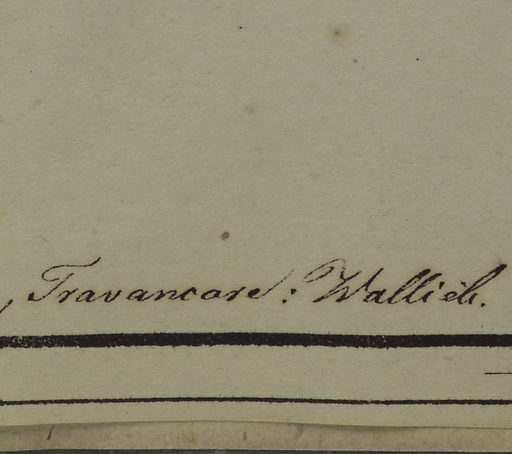 , Travancore: Wallich.